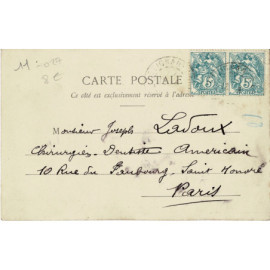 CARTE POSTALE
Ce côté est exclusivement réservé à l'adresse
Monsieur Joseph Ladoux
Chirurgien-Dentiste Américain
10 Rue du Faubourg-Saint Honoré
Paris